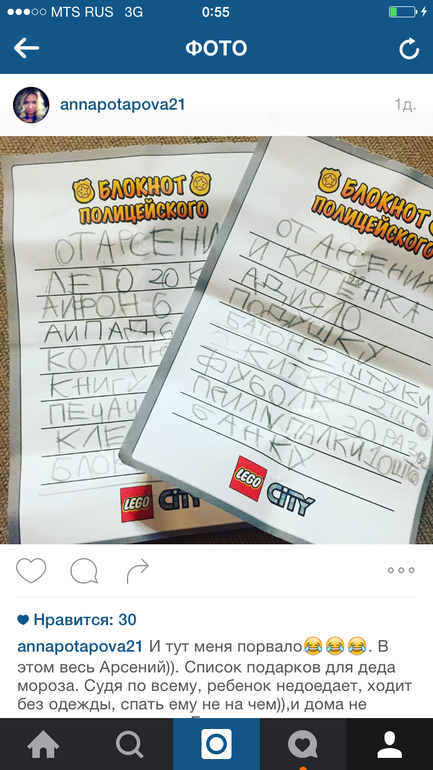 MTS RUS 3G 0:55
ФОТО
annapotapova21 1д.
БЛОКНОТ
ПОЛИЦЕЙСКОГО
ОТ АРСЕНИ
ЛЕГО 20 К
АИРОН 6
АИПАД 6
КОМПЮ
КНИГУ
ПЕЧАЧ
КЛЕ
БЛОК
LEGO CITY
БЛОКНОТ
ПОЛИЦЕЙСКОГО
ОТ АРСЕНИЯ
И КАТЁНКА
АДИЯЛО
ПОДУШКУ
БАТОН 2 ШТУКИ
КИТКАТ 2 ШТ
ФУТБОЛК 20 РАЗ
ПАЛКИ 10 ШТ
БАНКУ
LEGO CITY
Нравится: 30
annapotapova21 И тут меня порвало😂😂😂. В
этом весь Арсений)). Список подарков для деда
мороза. Судя по всему, ребенок недоедает, ходит
без одежды, спать ему не на чем)),и дома не